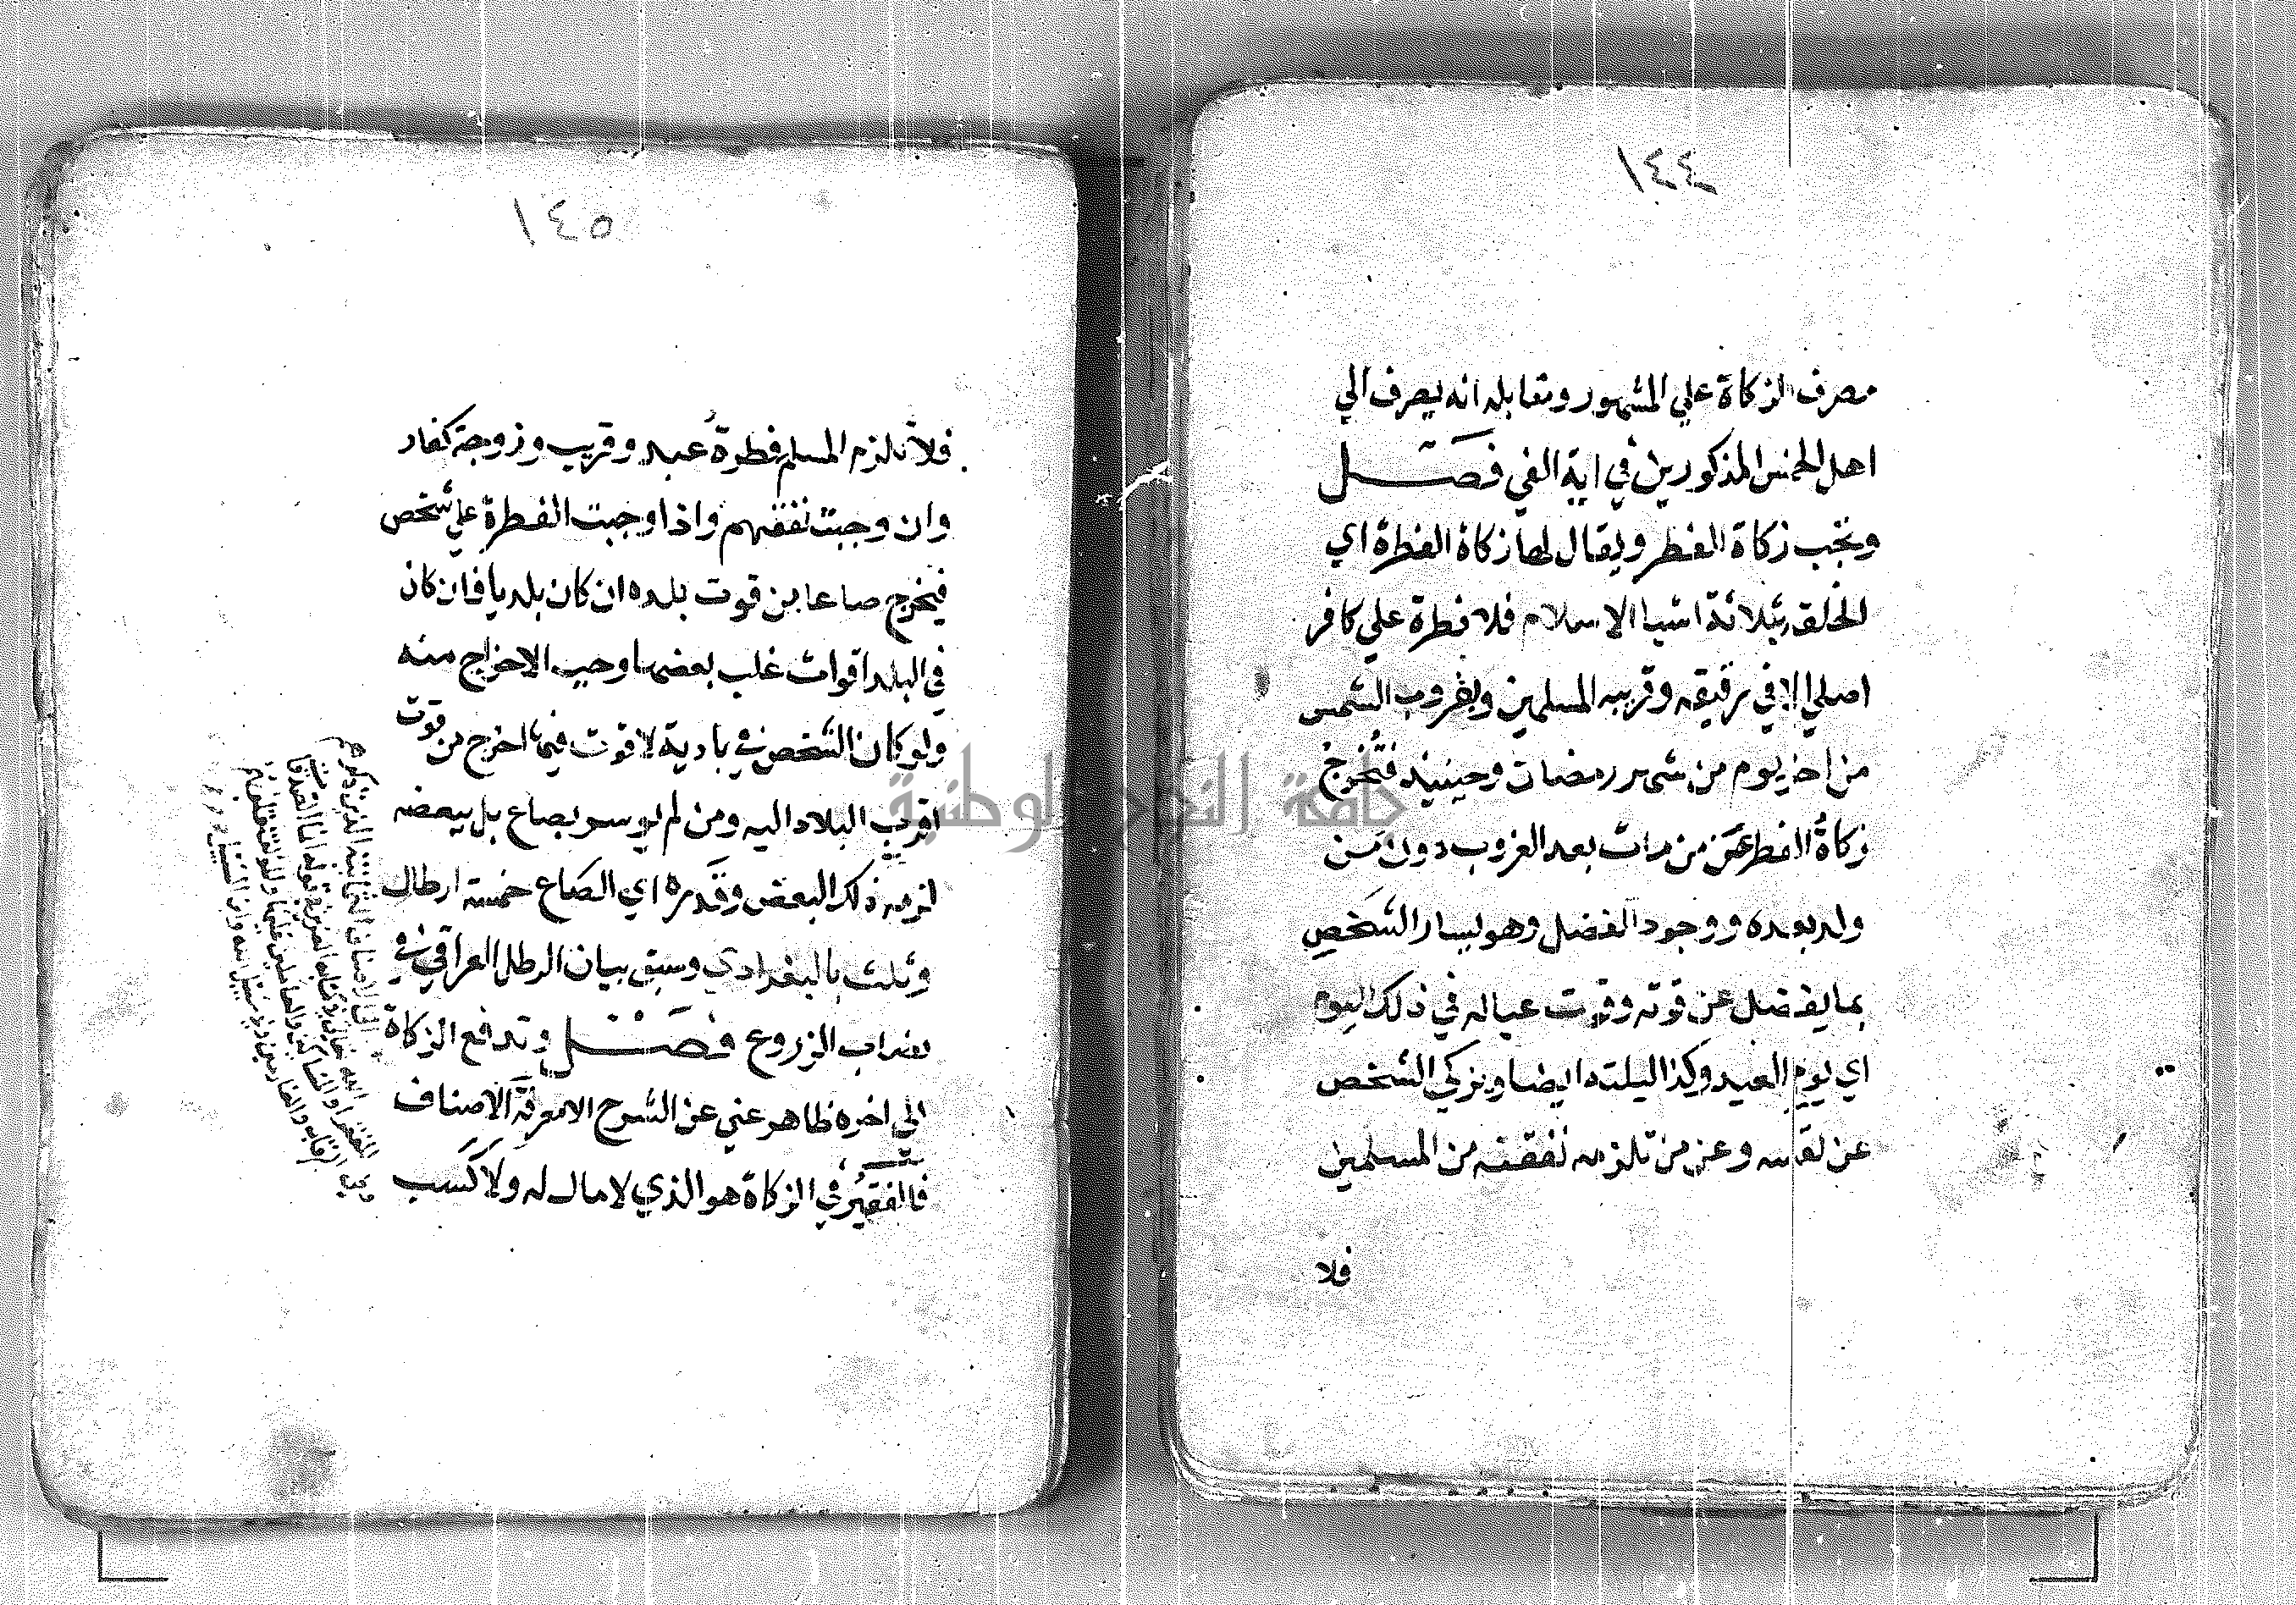 ١٤٤
مصرف الزكاة علي المشهور ومقابله انه يصرف الي
اهل الخمس المذكورين في اية الفي فصل
وتجب زكاة الفطر ويقال لها زكاة الفطرة اي
الخلقة بثلاثة اشيا الاسلام فلا فطرة علي كافر
اصلي الا في رقيقه وقريبه المسلمين وبغروب الشمس
من اخر يوم من شهر رمضان وحينيذ فتُخرج
زكاةُ الفطر عمن مات بعد الغروب دون من
ولد بعده ووجود الفضل وهو يسار الشخصِ
بما يفضل عن قوته وقوت عياله في ذلك اليوم
اي يوم العيد وكذا ليلته ايضا ويزكي الشخص
عن نفسه وعن من تلزمه نفقته من المسلمين
فلا
١٤٥
فلا تلزم المسلم فطرةُ عبد وقريب وزوجة كفار
وان وجبت نفقتهم واذا وجبت الفطرة علي شخص
فيخرج صاعا من قوت بلده ان كان بلديا فان كان
في البلد اقوات غلب بعضها وجب الاخراج منه
ولو كان الشخص في بادية لا قوت فيها اخرج من قوت
اقرب البلاد اليه ومن لم يوسر بصاع بل ببعضه
لزمه ذلك البعض وقدره اي الصاع خمسة ارطال
وثلث بالبغدادي وسبق بيان الرطل العراقي في
نصاب الزروع فصل وتدفع الزكاة
الي الاصناف الثمانية الذين ذكرهم
الله تعالى في كتابه العزيز في قوله انما الصدقات
للفقرا والمساكين والعاملين عليها والمولفة قلوبهم
وفي الرقاب والغارمين وفي سبيل الله وابن السبيل
الي اخره ظاهر غني عن الشرح الا معرفة الاصناف
فالفقير في الزكاة هو الذي لا مال له ولا كسب
جامعة النجاح الوطنية